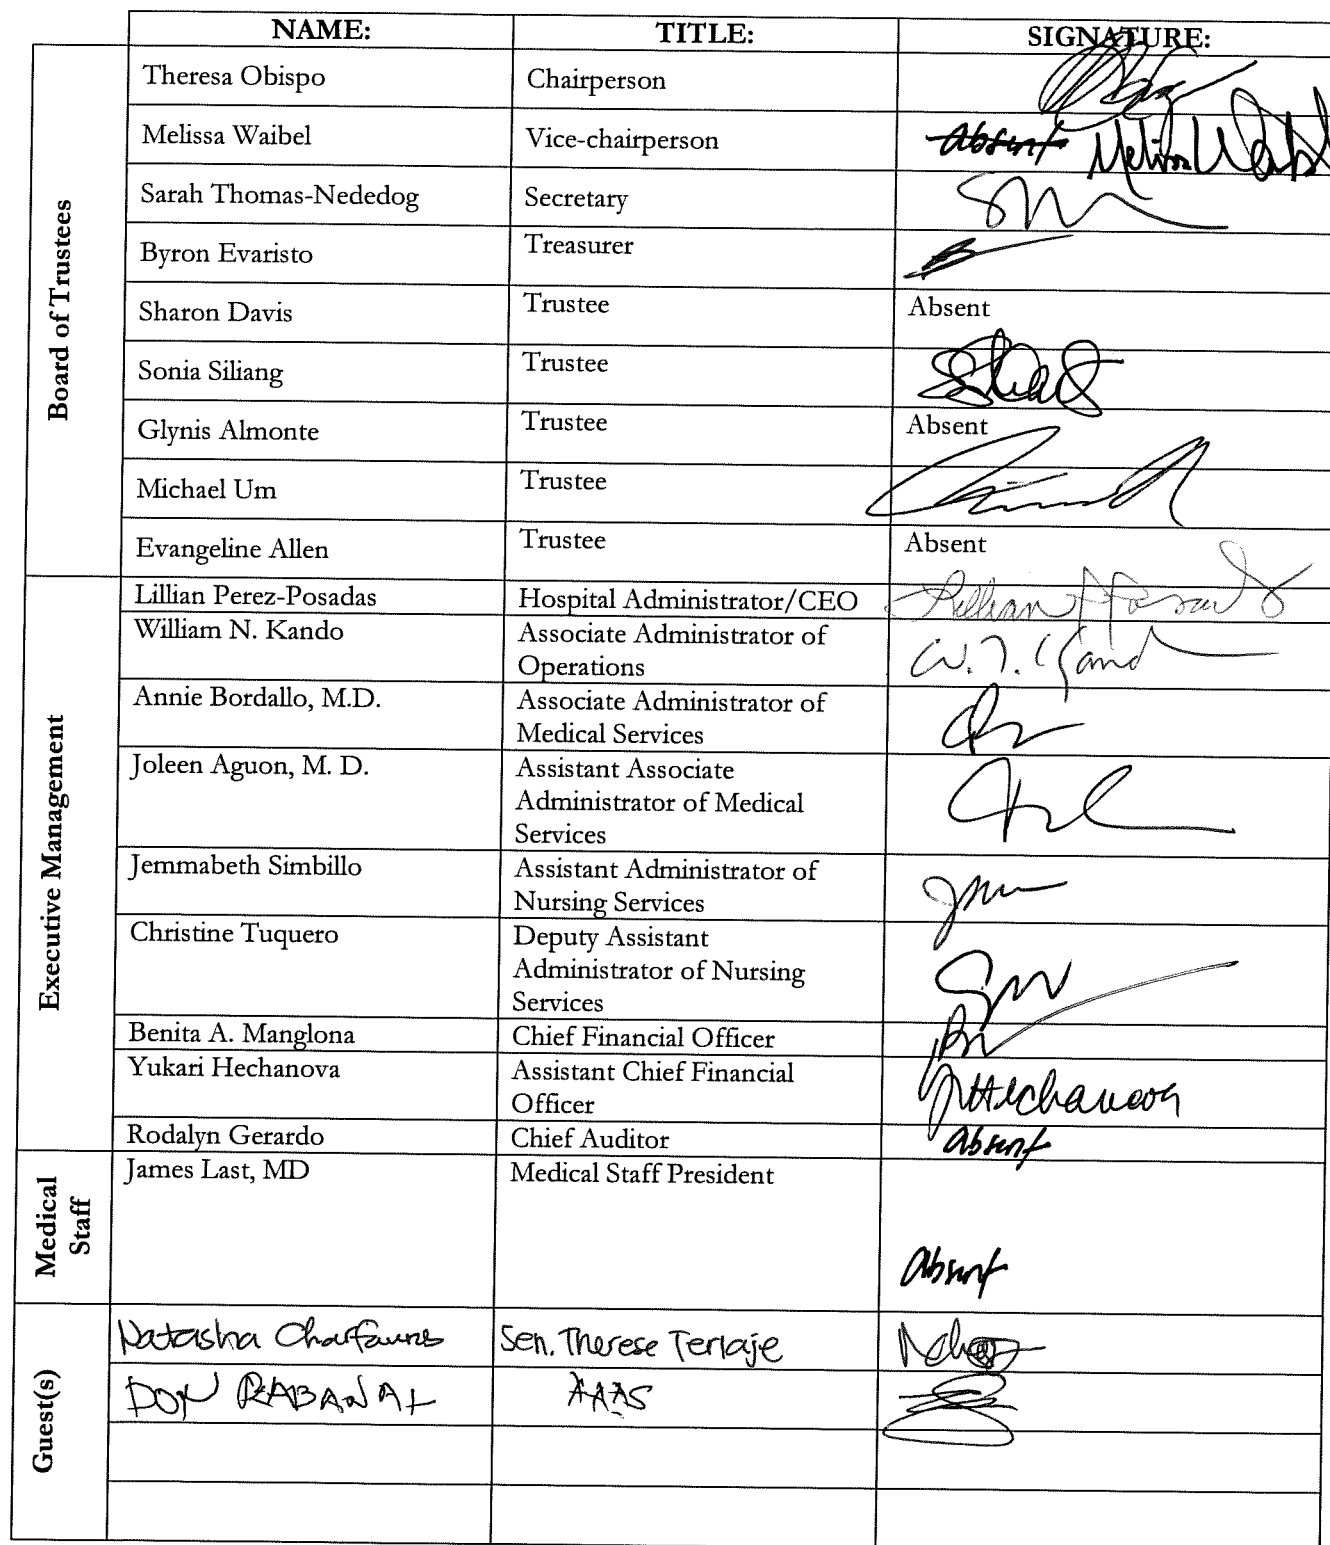 NAME: TITLE: SIGNATURE:
Board of Trustees
Theresa Obispo Chairperson
Melissa Waibel Vice-chairperson Absent Melissa Waibel
Sarah Thomas-Nededog Secretary
Byron Evaristo Treasurer
Sharon Davis Trustee Absent
Sonia Siliang Trustee
Glynis Almonte Trustee Absent
Michael Um Trustee
Evangeline Allen Trustee Absent
Executive Management
Lillian Perez-Posadas Hospital Administrator/CEO Lillian Posadas
William N. Kando Associate Administrator of
Operations
Annie Bordallo, M.D. Associate Administrator of
Medical Services
Joleen Aguon, M. D. Assistant Associate
Administrator of Medical
Services
Jemmabeth Simbillo Assistant Administrator of
Nursing Services
Christine Tuquero Deputy Assistant
Administrator of Nursing
Services
Benita A. Manglona Chief Financial Officer
Yukari Hechanova Assistant Chief Financial
Officer
Rodalyn Gerardo Chief Auditor Absent
Medical
Staff
James Last, MD Medical Staff President
Absent
Guest(s)
Natasha Charfauros Sen. Therese Terlaje
DON RABANAL AAAS